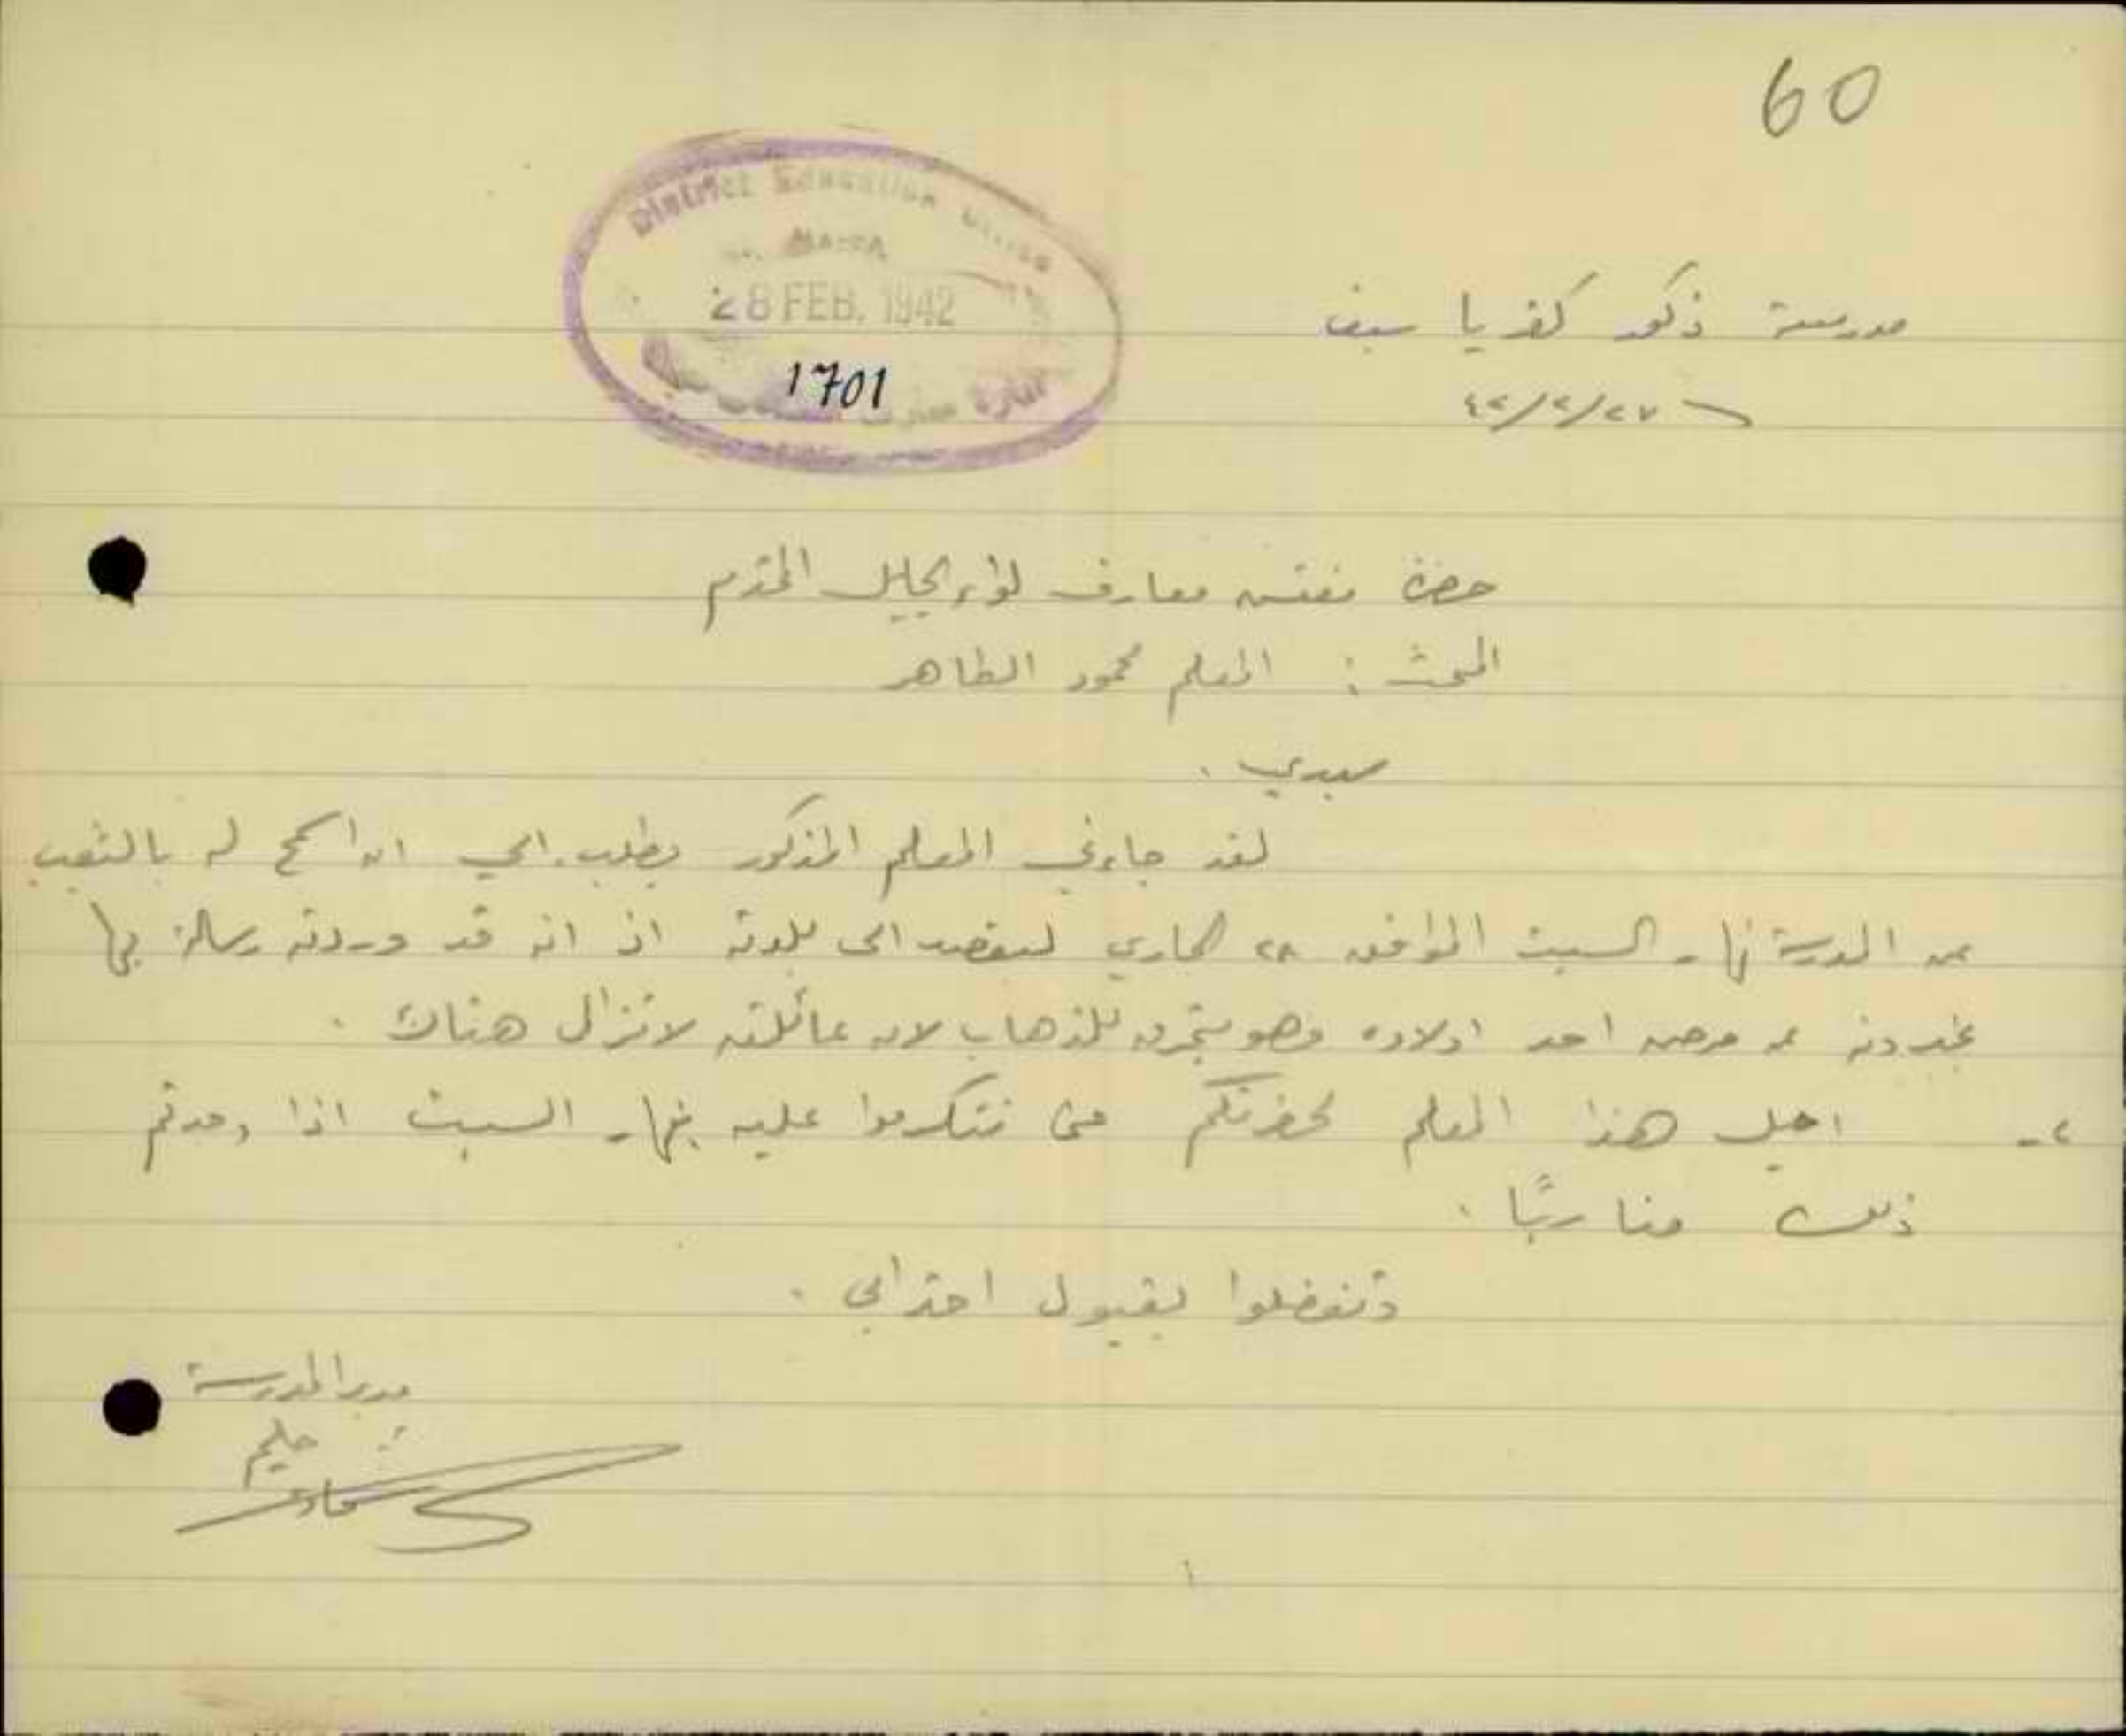 60
District Education Office
28 FEB. 1942
1701
مدرسة ذكور كفر ياسيف
٤٢/٢/٢٧
حضرة مفتش معارف لواء الجليل المحترم
المبحث : المعلم محمود الطاهر
سيدي .
لقد جاءني المعلم المذكور يطلب الي ان اسمح له بالتغيب
عن المدرسة نهار السبت الموافق ٢٨ الجاري ليقصد الى بلدته اذ انه قد وردته رسالة بها
يخبرونه عن مرض احد اولاده وهو للذهاب لان عائلته لا تزال هناك .
٢- احيل هذا المعلم لحضرتكم حتى تتكرموا عليه بنهار السبت اذا وجدتم
ذلك مناسبًا .
وتفضلوا بقبول احترامي .
مدير المدرسة
حليم